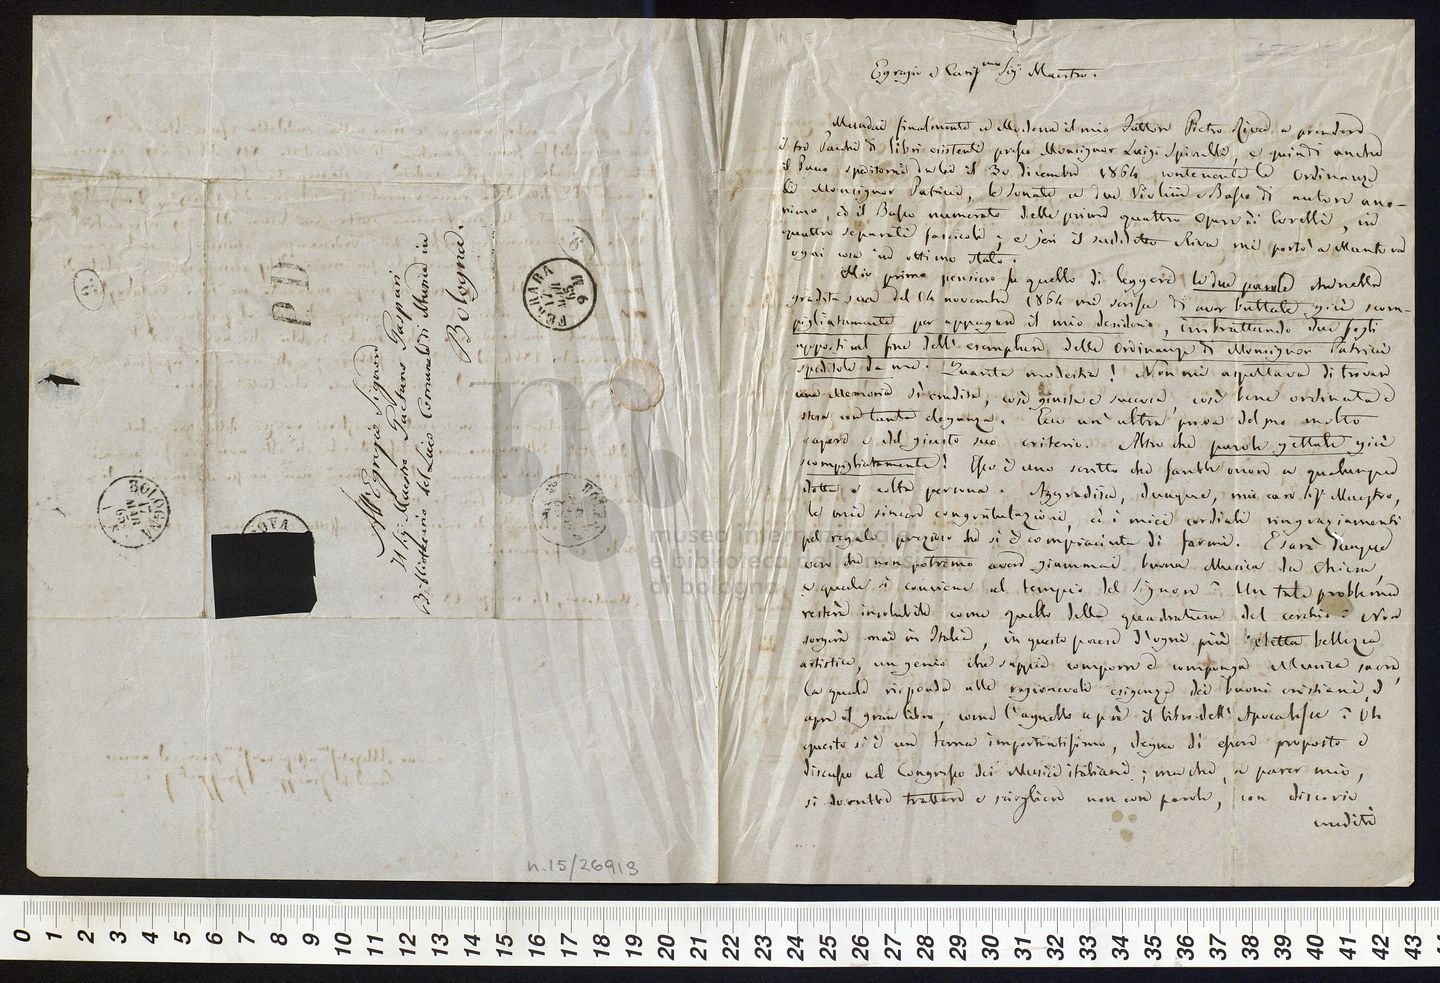 N. 15
Egregio e Cariss.mo Sig.r Maestro.
Mandai finalmente a Modena il mio Fattore Pietro Riva a prendere
i tre Pacchi di libri esistenti presso Monsignor Luigi Spinelli, e quindi anche
il Pacco speditomi da lei il 30 dicembre 1864 contenente le Ordinanze
di Monsignor Patrizi, le Sonate a due Violini e Basso di autore ano-
nimo, ed il Basso numerato delle prime quattro Opere di Corelli, in
quattro separati fascicoli; e jeri il suddetto Riva mi portò a Mantova
ogni cosa in ottimo stato.
Mio primo pensiero fu quello di leggere le due parole che nella
gradita sua del 14 novembre 1864 mi scrisse di aver buttate giù scom-
pigliatamente per appagare il mio desiderio, imbrattando due fogli
apposti al fine dell' esemplare delle Ordinanze di Monsignor Patrizi
speditole da me. Quanta modestia! Non mi aspettava di trovare
una Memoria sì erudita, così giusta e succosa, così bene ordinata e
stesa con tanta eleganza. Ecco un' altra prova del suo molto
sapere e del giusto suo criterio. Altro che parole gettate giù
scompigliatamente! Esso è uno scritto che farebbe onore a qualunque
dotta e colta persona. Aggradisca, dunque, mio caro Sig.r Maestro,
le mie sincere congratulazioni, ed i miei cordiali ringraziamenti
pel regalo prezioso che si è compiaciuta di farmi. E sarà dunque
vero che non potremo avere giammai buona Musica da Chiesa,
e quale si conviene al tempio del Signore? Un tale problema
resterà insolubile come quello della quadratura del cerchio? Non
sorgerà mai in Italia, in questo paese d'ogni più eletta bellezza
artistica, un genio che sappia comporre e componga Musica sacra,
la quale risponda alle ragionevoli esigenze dei buoni cristiani, e
apre il gran libro, come l'agnello aprì il libro dell' Apocalisse? Oh
questo sì è un tema importantissimo, degno di essere proposto e
discusso nel Congresso dei Musici italiani; ma che, a parer mio,
si dovrebbe trattare e sciogliere non con parole, con discorsi
eruditi
All' Egregio Signore
Il Sig. Maestro Gaetano Gaspari
Bibliotecario del Liceo Comunale di Musica in
Bologna.
PD
FERRARA
17
MAR
65
BOLOGNA
17
MAR
65
OVA
n.15/26913
museo internazionale
e biblioteca della musica
di bologna
0 1 2 3 4 5 6 7 8 9 10 11 12 13 14 15 16 17 18 19 20 21 22 23 24 25 26 27 28 29 30 31 32 33 34 35 36 37 38 39 40 41 42 43